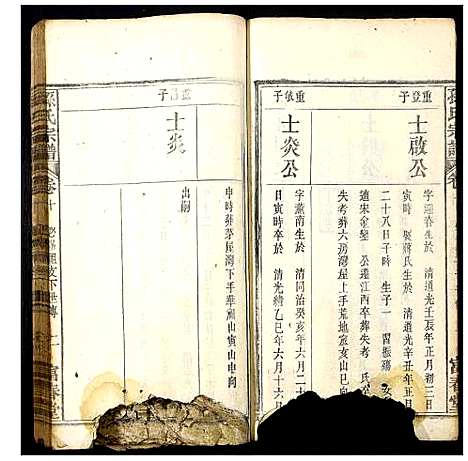 孫氏宗譜
卷
富春堂
重登子
士啟公
字迎春生於 清道光壬辰年正月初三日
寅時 娶蔣氏生於 清道光辛
二十八日子時 生子一 習振 女
適宋金鑾 公遷江西卒葬失考 氏
失考葬六房灣屋上手荒地寅亥山巳向
重依子
士炎公
字薰南生於 清同治癸亥年六月二十
日寅時卒於 清光緒乙巳年六月十六日
申時葬茅屋灣下手華 山寅山申向
子
士炎
出嗣
孫氏宗譜
卷十
下世傳
富春堂